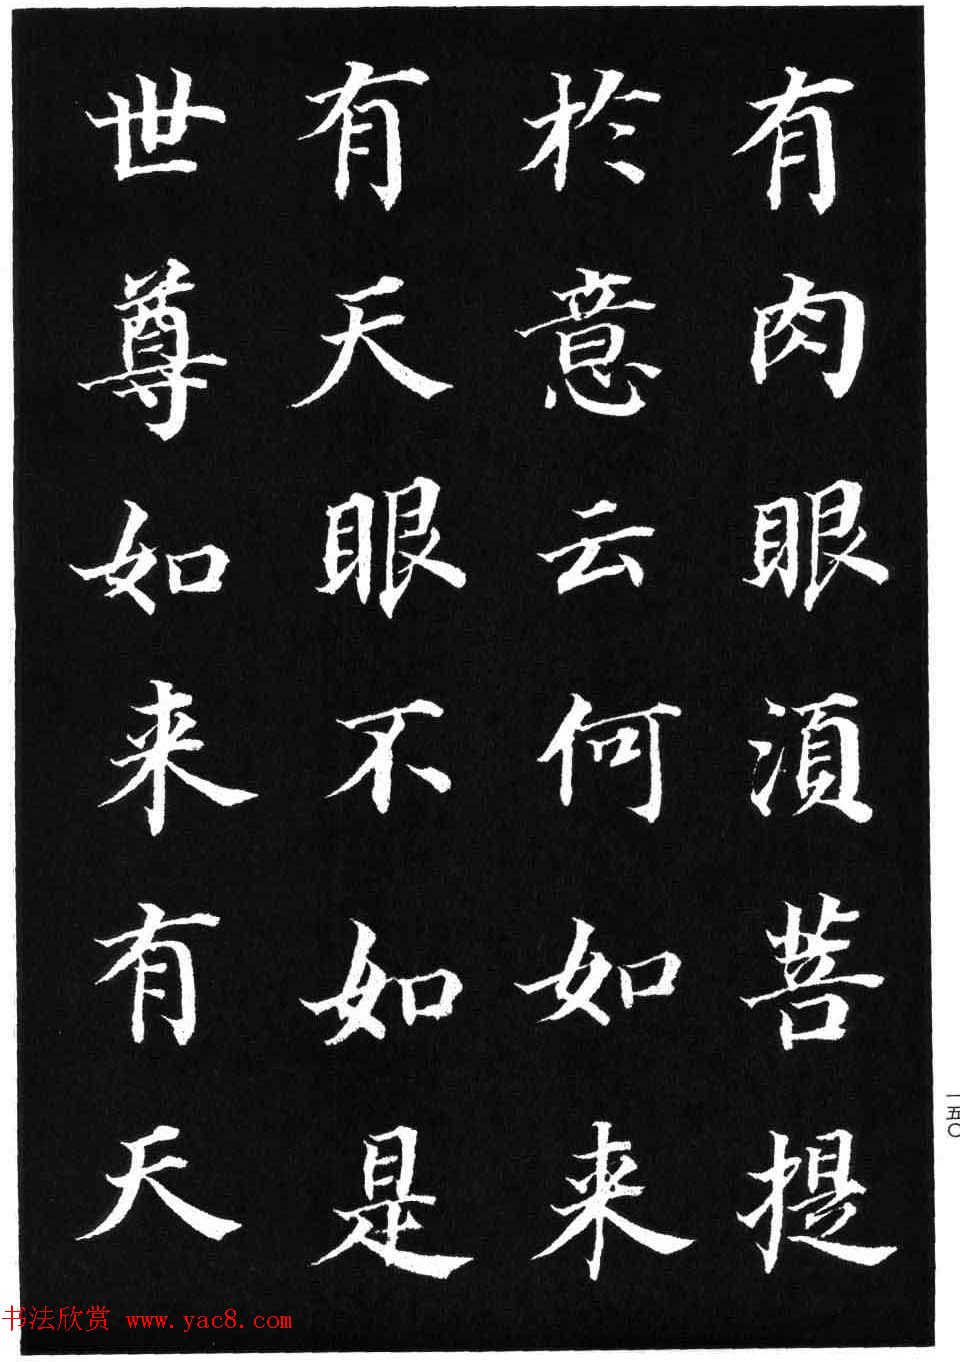 有肉眼湏菩提
於意云何如来
有天眼不如是
世尊如来有天
一五〇
书法欣赏 www.yac8.com